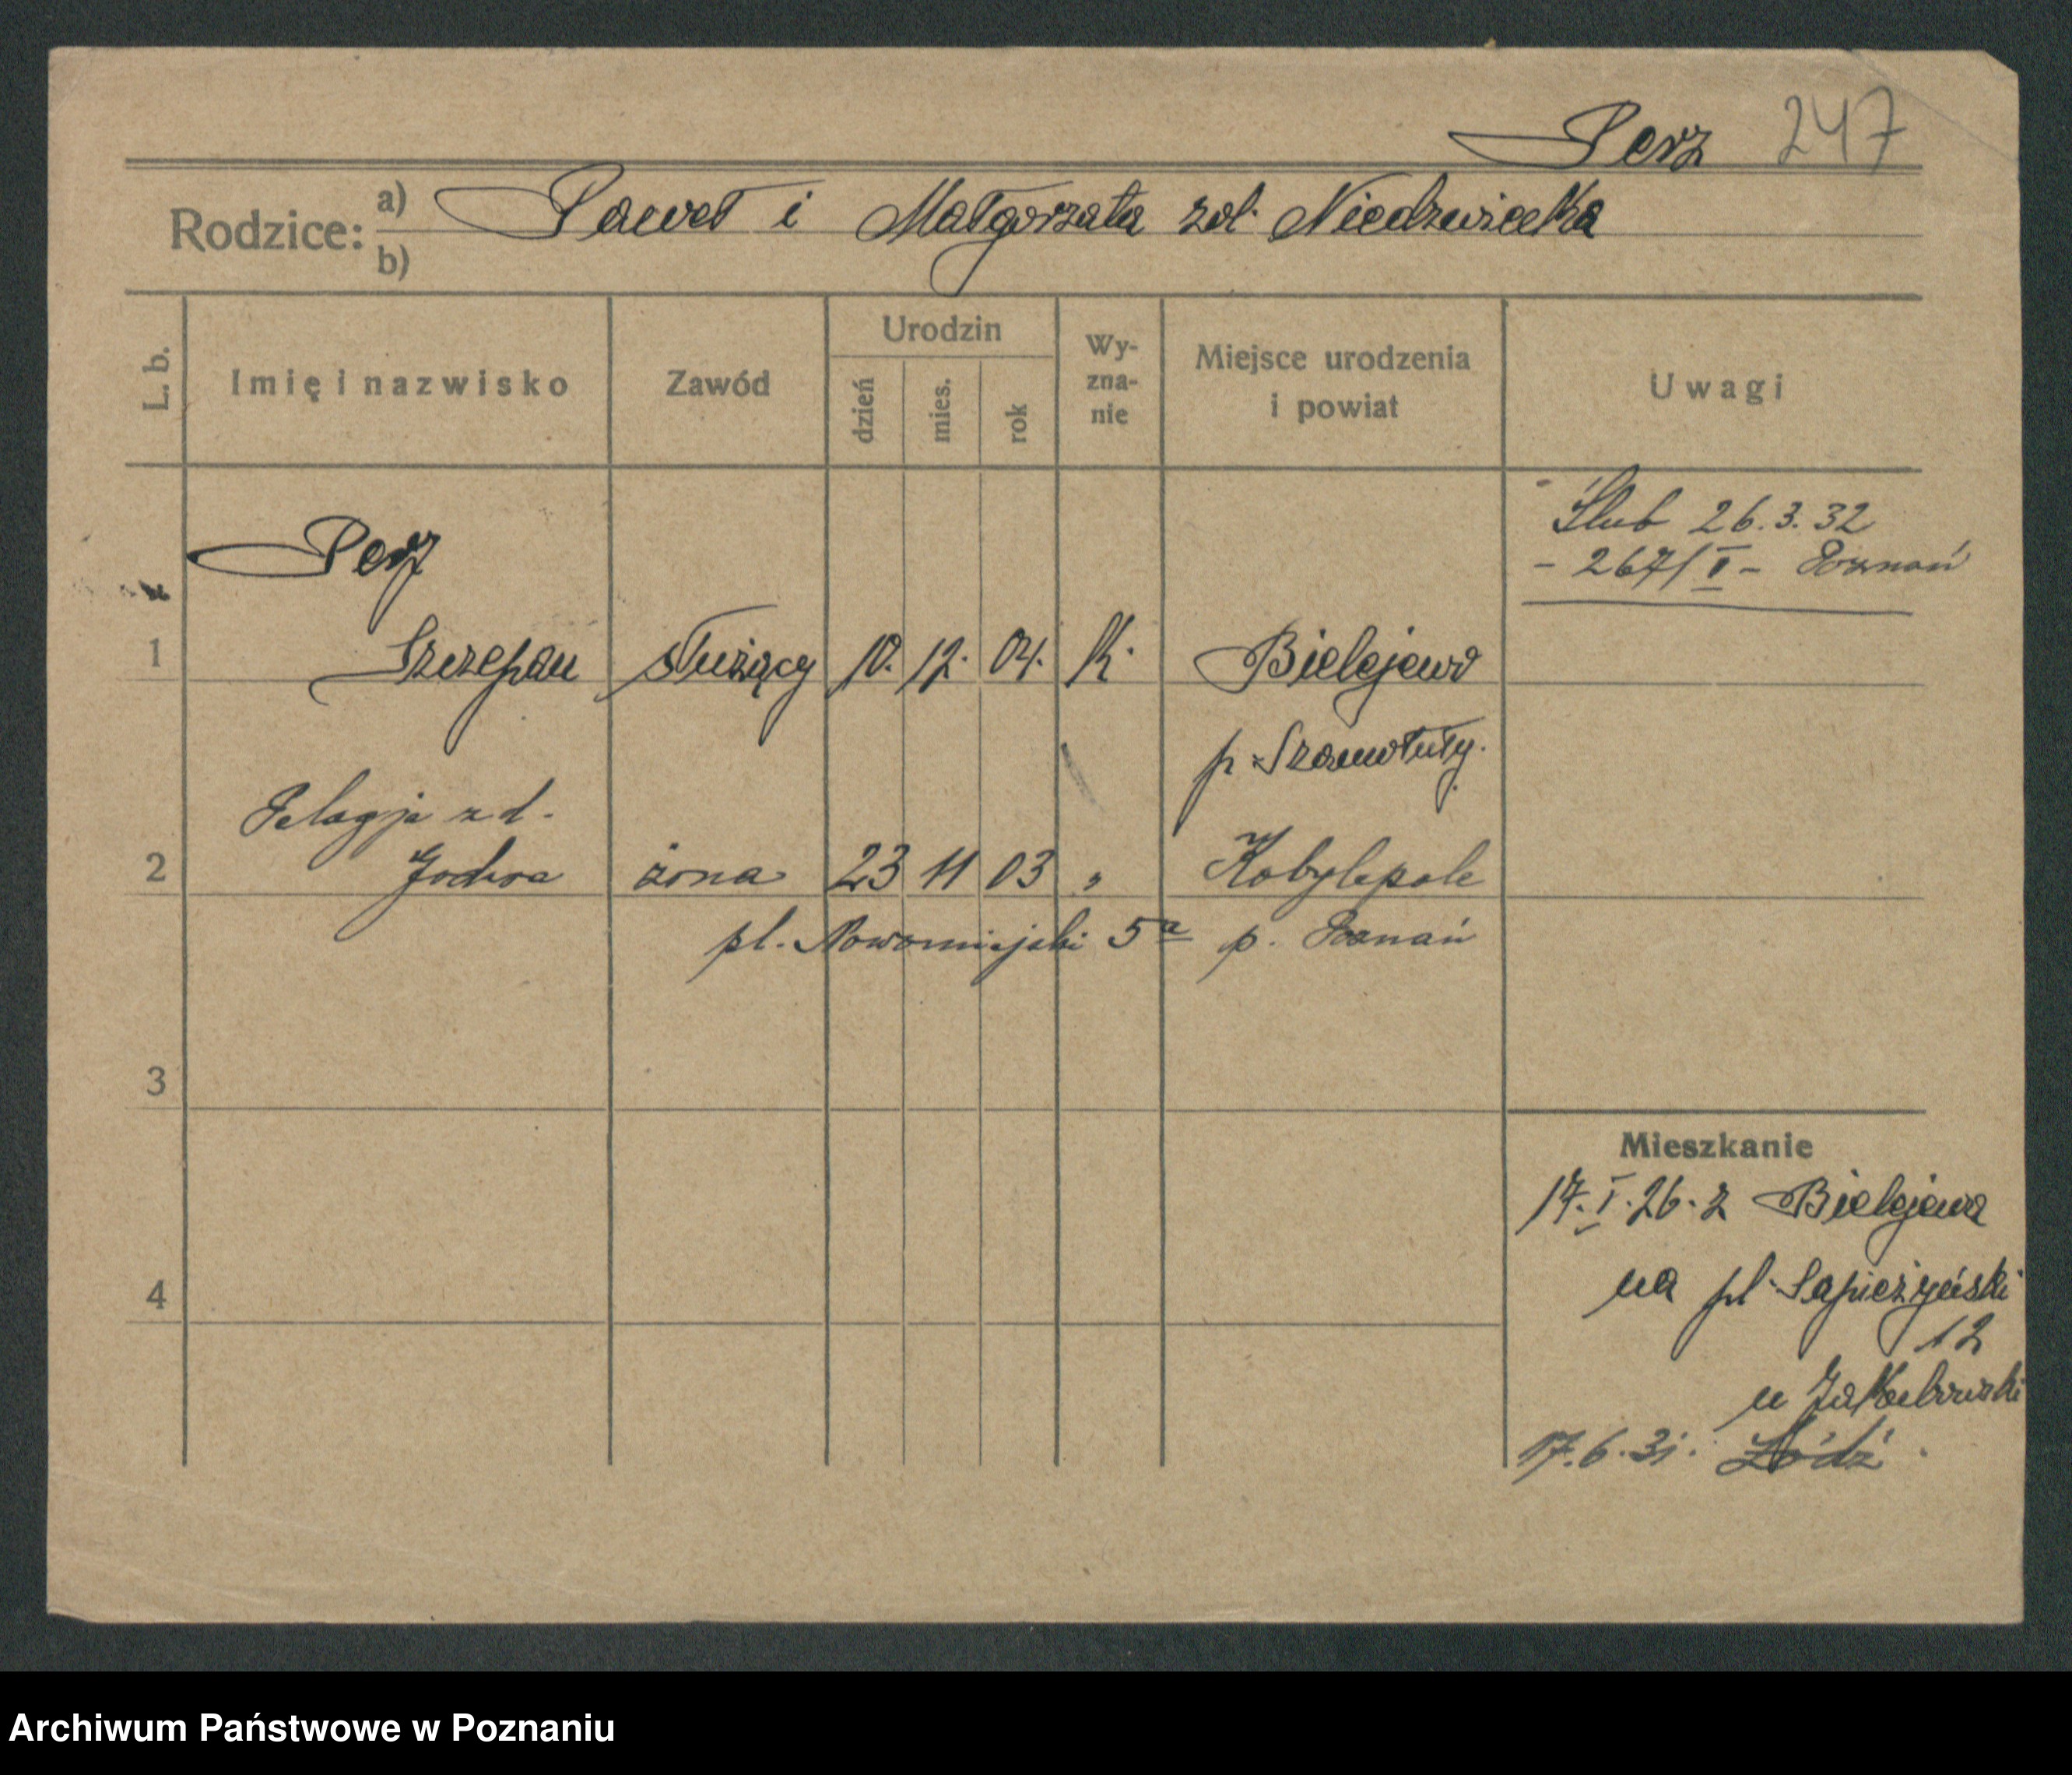 Perz 247
Rodzice: a) Paweł i Małgorzata zd. Niedzwiecka
b)
L. b.
Imię i nazwisko
Zawód
Urodzin
dzień
mies.
rok
Wy-
zna-
nie
Miejsce urodzenia
i powiat
Uwagi
Ślub 26.3.32
- 267/I - Poznań
Perz
1 Szczepan służący 10. 12. 04. K. Bielejewo
p. Szamotuły.
Pelagja z d.
2 żona 23 11 03 " Kobylepole
pl. Nowomiejski 5a p. Poznań
3
4
Mieszkanie
17.I.26. z Bielejewa
na pl. Sapieżyński
12
u Jakubowski
17.6.31. Łódź.
Archiwum Państwowe w Poznaniu